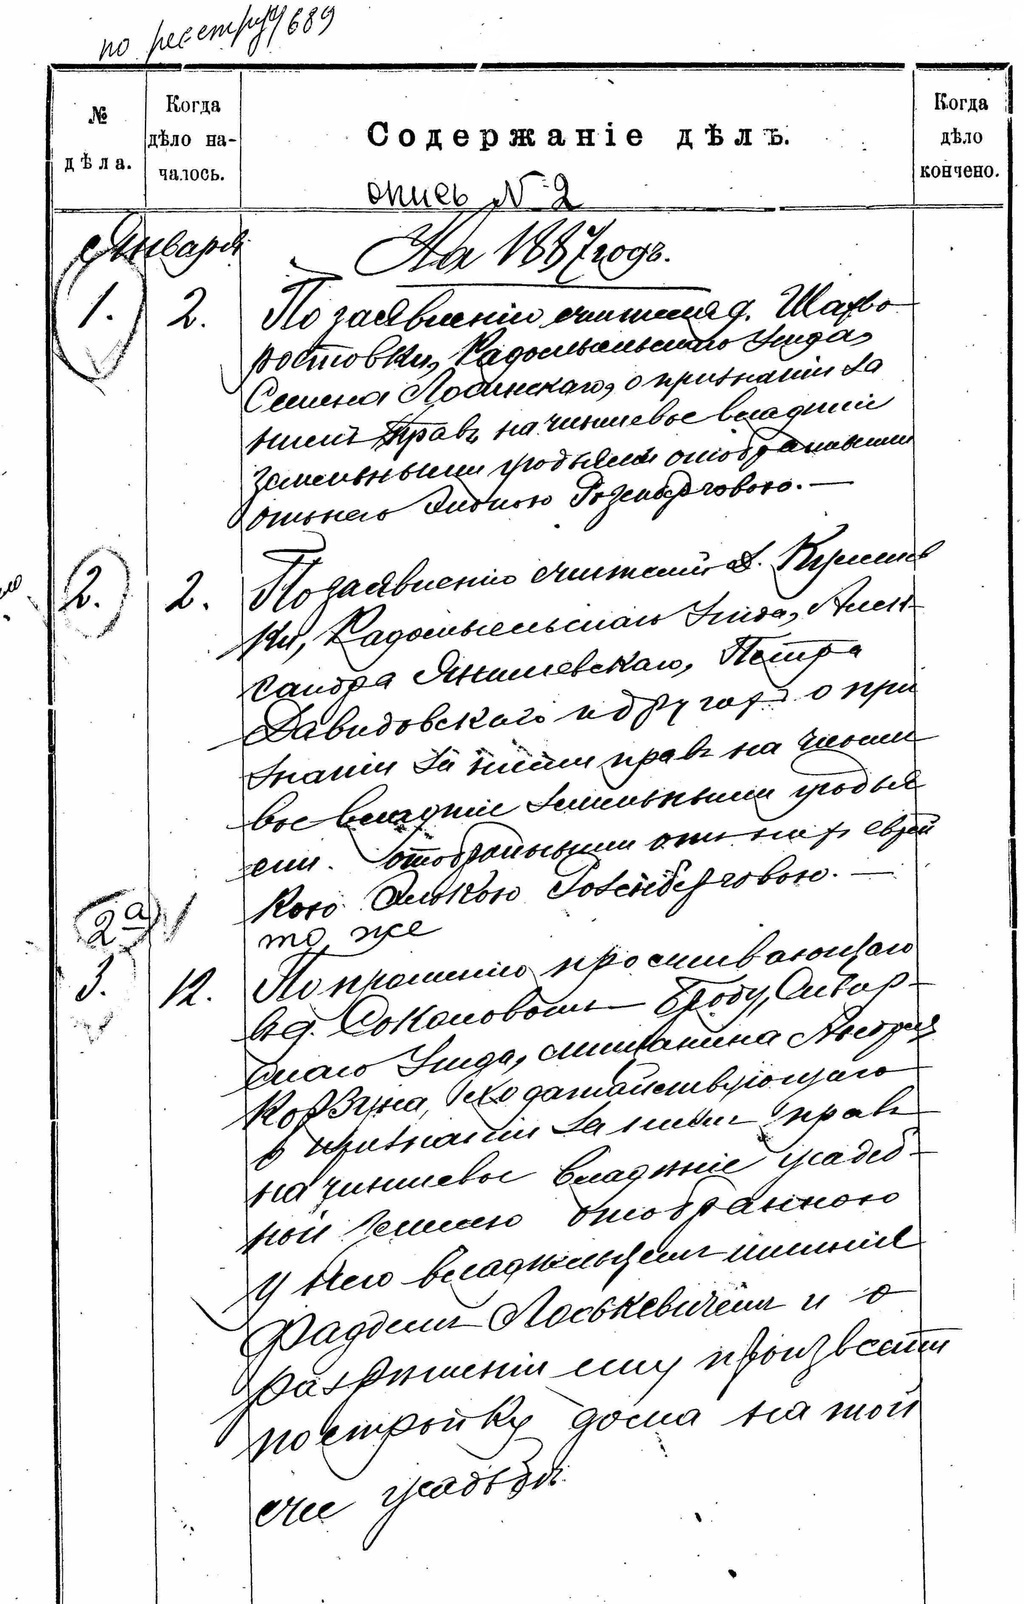 по реестру 689
№ дѣла.
Когда дѣло на-
чалось.
Содержаніе дѣлъ.
Когда дѣло кончено.
опись № 2
Января
На 1887 годъ.
1. 2. По заявленію жителя д. Шахво-
ростовки, Радомысльскаго Уѣзда,
Семена Лосинскаго, о признаніи за
нимъ правъ на чиншевое владѣніе
земельными угодьями отобранными
отъ него Розенберговою.—
2. 2. По заявленію жителей д.
ки, Радомысльскаго Уѣзда, Алек-
сандра Янишевскаго, Петра
Давидовскаго и другихъ о при
знаніи за ними правъ на чинше
вое владѣніе земельными угодья
ми. отобранными отъ нихъ еврей
кою Розенберговою.—
2а то же
3. 12. По прошенію проживающаго
въ д. Соколовомъ Броду, Сквир-
скаго Уѣзда, мѣщанина Андрея
Корзуна, ходатайствующаго
о признаніи за нимъ правъ
на чиншевое владѣніе усадеб-
ной землею отобранною
у него владѣльцемъ имѣнія
Фаддеемъ Лоськевичемъ и о
разрѣшеніи ему произвести
постройку дома на той
же усадьбѣ.